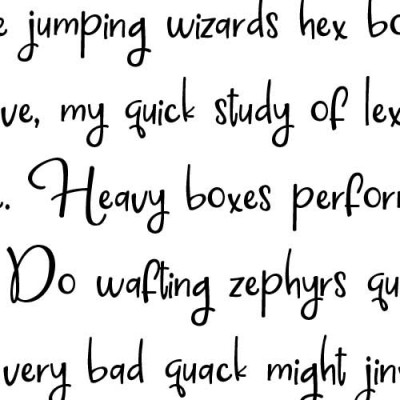 e jumping wizards hex bo
ve, my quick study of lex
. Heavy boxes perform
Do wafting zephyrs qu
very bad quack might jinx